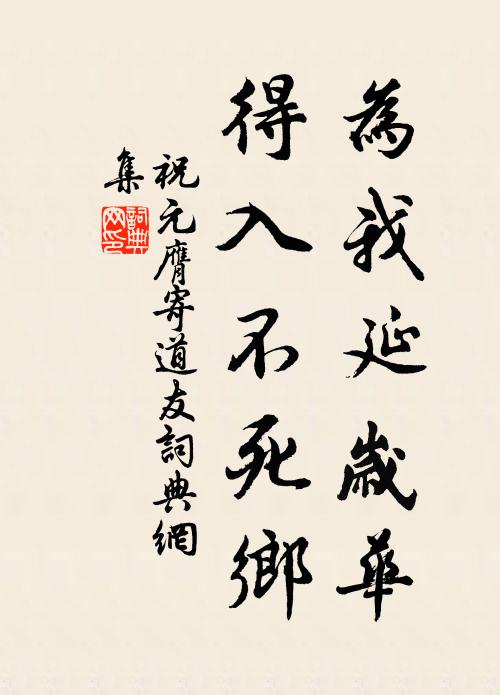 為我延歲華
得入不死鄉
祝元膺寄道友詞典網
集
詞典
网印